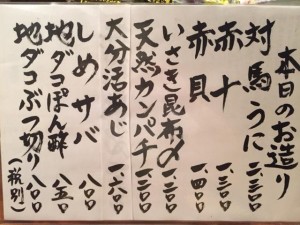 本日のお造り
対馬うに 一、三〇〇
赤十 一、三〇〇
赤貝 一、四〇〇
いさき昆布〆 一、二〇〇
天然カンパチ 一、三〇〇
大分活あじ 一、六〇〇
しめサバ 八〇〇
地ダコぽん酢 八五〇
地ダコぶつ切り 八〇〇
(税別)